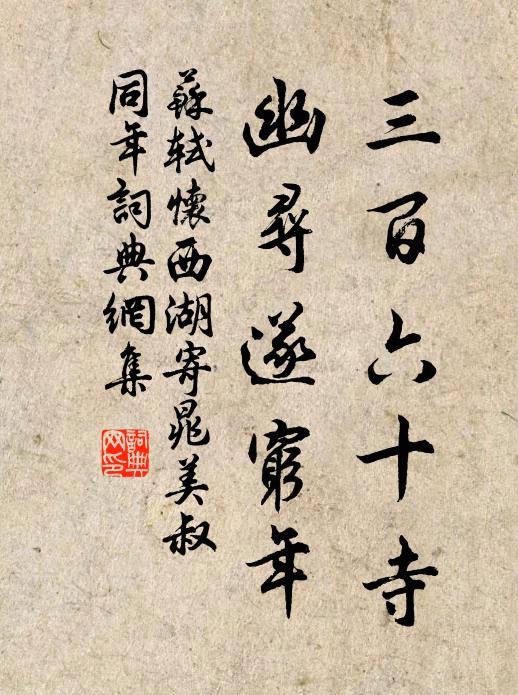 三百六十寺
幽尋遂窮年
蘇軾懷西湖寄晁美叔
同年詞典網集
詞典网印